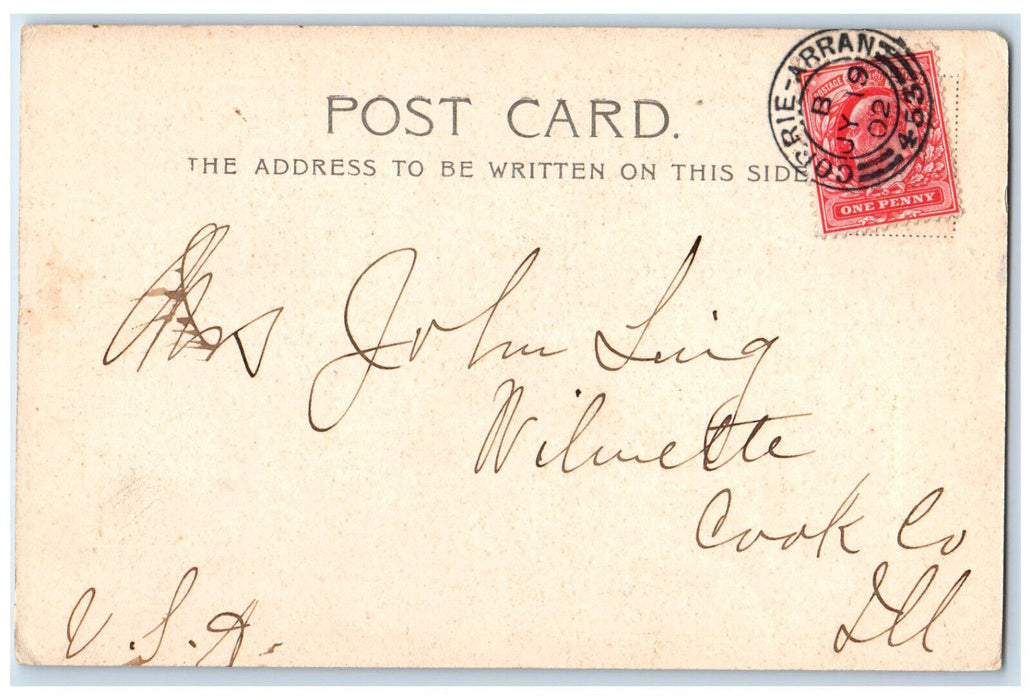 POST CARD.
THE ADDRESS TO BE WRITTEN ON THIS SIDE
CORRIE-ARRAN
B
JY 19
02
453
ONE PENNY
Mrs John Ling
Wilmette
Cook Co
Ill
U.S.A.